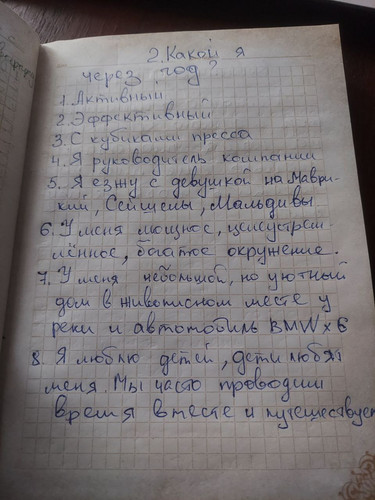 2. Какой я
через год?
1. Активный
2. Эффективный
3. С кубиками пресса
4. Я руководитель компании
5. Я езжу с девушкой на Маври-
кий, Сейшелы, Мальдивы
6. У меня мощное, целеустрем
лённое, богатое окружение.
7. У меня небольшой, но уютный
дом в живописном месте у
реки и автомобиль BMW x 6
8. Я люблю детей, дети любят
меня. Мы часто проводим
время вместе и путешествуем